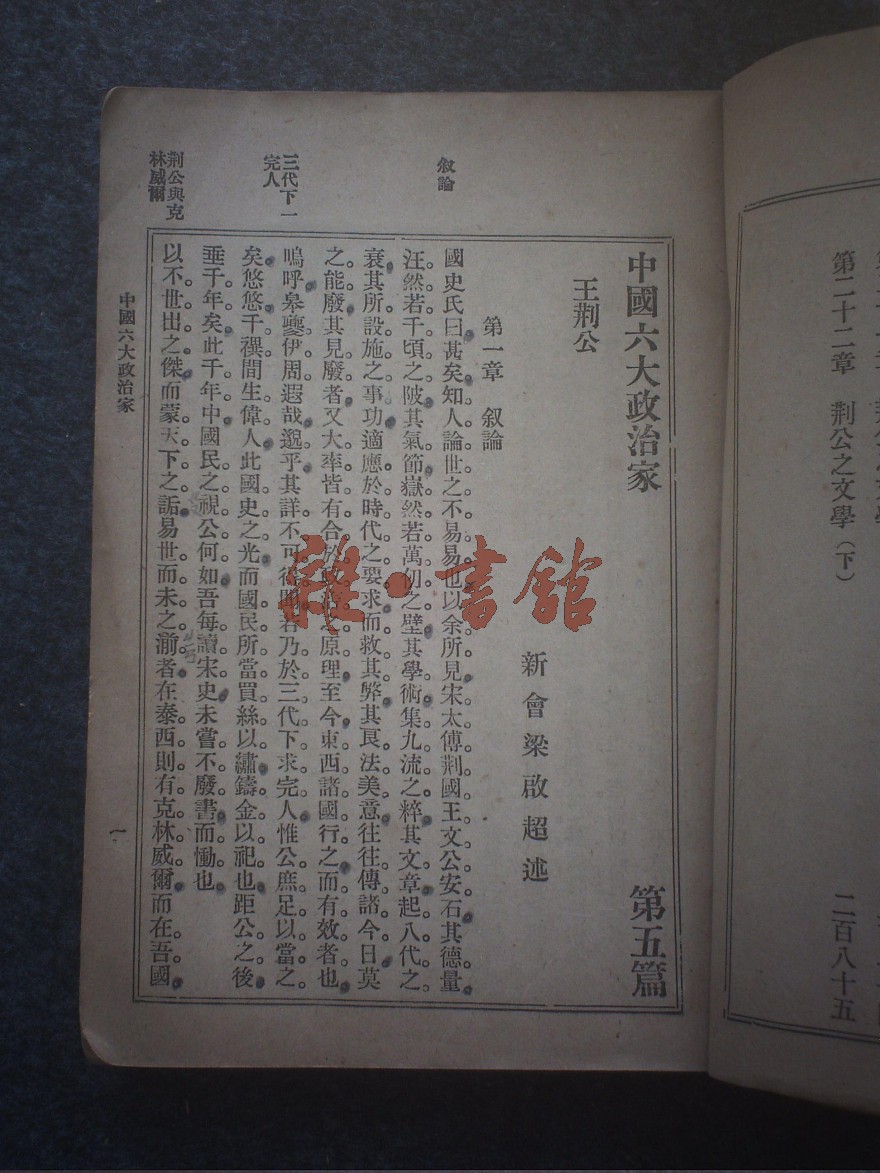 第二十二章　荆公之文學（下）　二百八十五
中國六大政治家　第五篇
王荆公
新會梁啟超述
第一章　叙論
叙論
國史氏曰甚矣知人論世之不易易也以余所見宋太傅荆國王文公安石其德量
汪然若千頃之陂其氣節嶽然若萬仞之壁其學術集九流之粹其文章起八代之
衰其所設施之事功適應於時代之要求而救其弊其良法美意往往傳諸今日莫
之能廢其見廢者又大率皆有合於政治之原理至今東西諸國行之而有效者也
三代下一
完人
嗚呼皋夔伊周遐哉邈乎其詳不可得聞若乃於三代下求完人惟公庶足以當之
矣悠悠千禩間生偉人此國史之光而國民所當買絲以繡鑄金以祀也距公之後
垂千年矣此千年中國民之視公何如吾每讀宋史未嘗不廢書而慟也
荆公與克
林威爾
以不世出之傑而蒙天下之詬易世而未之湔者在泰西則有克林威爾而在吾國
中國六大政治家　一
雜·書館